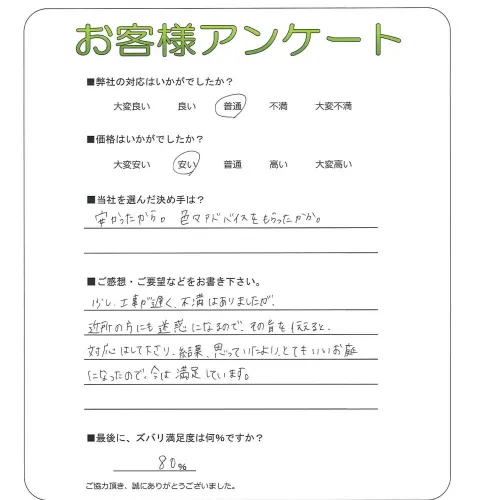 お客様アンケート
■弊社の対応はいかがでしたか？
大変良い 良い 普通 不満 大変不満
■価格はいかがでしたか？
大変安い 安い 普通 高い 大変高い
■当社を選んだ決め手は？
安かったから。色々アドバイスをもらったから。
■ご感想・ご要望などをお書き下さい。
少し、工事が遅く、不満はありましたが、
近所の方にも迷惑になるので、その旨を伝えると、
対応はして下さり、結果、思っていたより、とてもいいお庭
になったので、今は満足しています。
■最後に、ズバリ満足度は何％ですか？
80％
ご協力頂き、誠にありがとうございました。